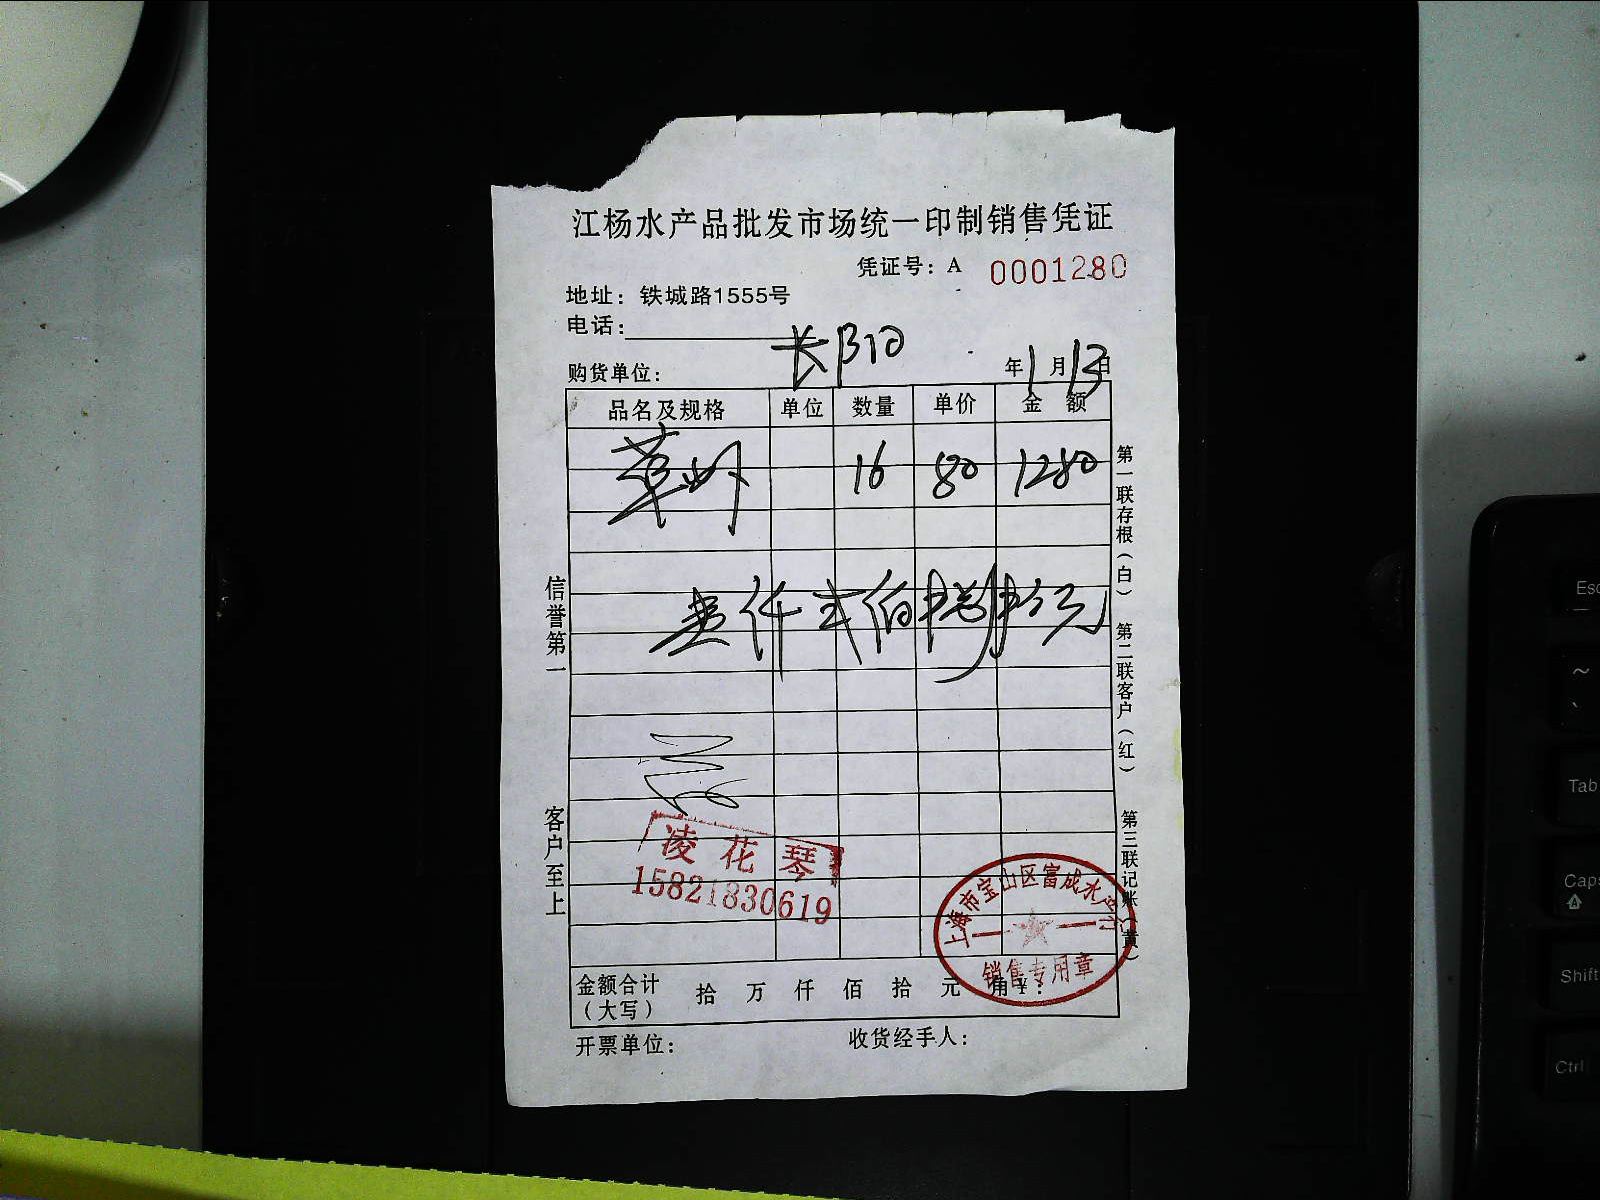 江杨水产品批发市场统一印制销售凭证
凭证号：A 0001280
地址：铁城路1555号
电话：
购货单位： 长B10 年1月13日
品名及规格 单位 数量 单价 金额
草虾 16 80 1280
壹仟弍佰捌拾元
凌花琴
15821830619
上海市宝山区富成水产行
销售专用章
金额合计（大写） 拾 万 仟 佰 拾 元 角 ¥：
开票单位： 收货经手人：
信誉第一
客户至上
第一联存根（白）
第二联客户（红）
第三联记账（黄）
Esc
~
Tab
Caps
Shift
Ctrl